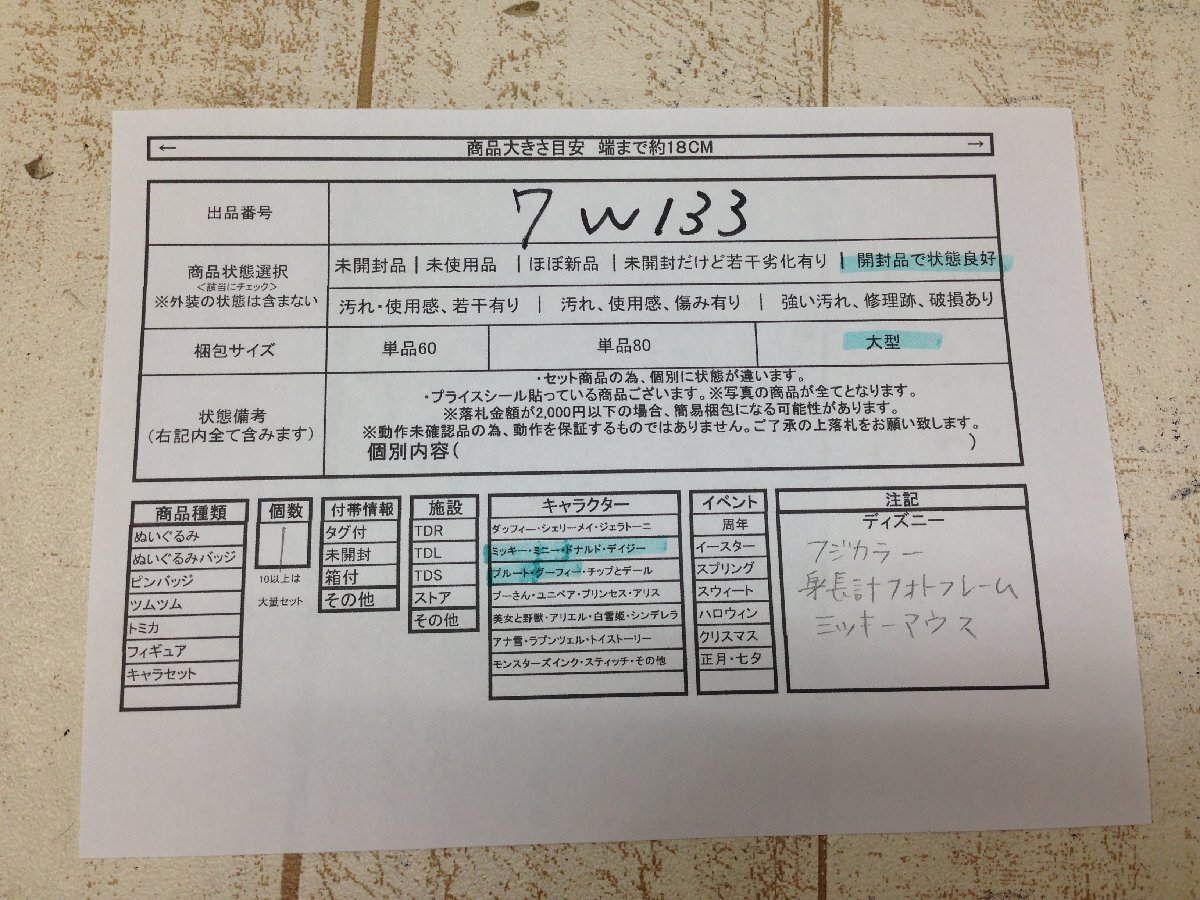 ← 商品大きさ目安 端まで約18CM →
出品番号 7W133
商品状態選択
<該当にチェック>
※外装の状態は含まない
未開封品 | 未使用品 | ほぼ新品 | 未開封だけど若干劣化有り | 開封品で状態良好
汚れ・使用感、若干有り | 汚れ、使用感、傷み有り | 強い汚れ、修理跡、破損あり
梱包サイズ 単品60 単品80 大型
状態備考
(右記内全て含みます)
・セット商品の為、個別に状態が違います。
・プライスシール貼っている商品ございます。※写真の商品が全てとなります。
※落札金額が2,000円以下の場合、簡易梱包になる可能性があります。
※動作未確認品の為、動作を保証するものではありません。ご了承の上落札をお願い致します。
個別内容( )
商品種類
ぬいぐるみ
ぬいぐるみバッジ
ピンバッジ
ツムツム
トミカ
フィギュア
キャラセット
個数
1
10以上は
大量セット
付帯情報
タグ付
未開封
箱付
その他
施設
TDR
TDL
TDS
ストア
その他
キャラクター
ダッフィー・シェリーメイ・ジェラトーニ
ミッキー・ミニー・ドナルド・デイジー
プルート・グーフィー・チップとデール
プーさん・ユニベア・プリンセス・アリス
美女と野獣・アリエル・白雪姫・シンデレラ
アナ雪・ラプンツェル・トイストーリー
モンスターズインク・スティッチ・その他
イベント
周年
イースター
スプリング
スウィート
ハロウィン
クリスマス
正月・七夕
注記
ディズニー
フジカラー
身長計フォトフレーム
ミッキーマウス